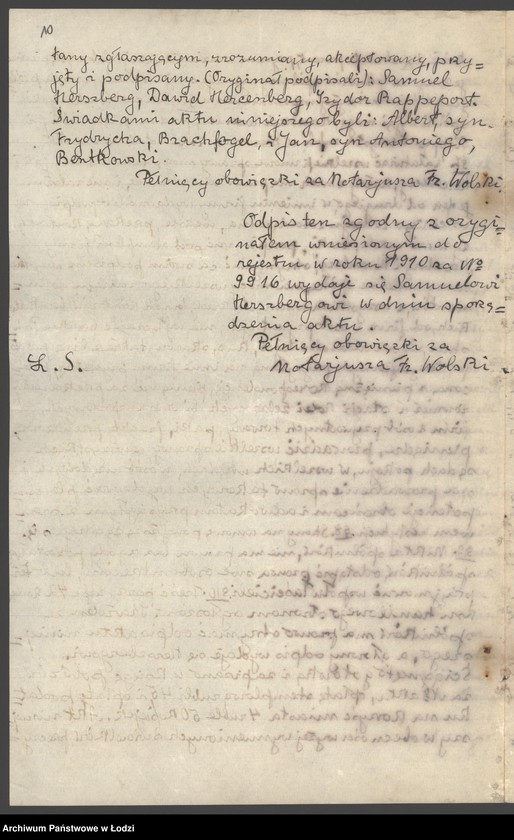 10
tany zgłaszającym, zrozumiany, akceptowany, przy=
jęty i podpisany. (Oryginał podpisali): Samuel
Herszberg, Dawid Hercenberg, Izydor Rappeport.
Świadkami aktu niniejszego byli: Albert, syn
Frydrycha, Brachfogel, i Jan, syn Antoniego,
Bentkowski.
Pełniący obowiązki za Notarjusza Fr. Wolski.
Odpis ten zgodny z orygi=
nałem wniesionym do
rejestru w roku 1910 za №
9916, wydaje się Samuelowi
Herszbergowi w dniu sporzą=
dzenia aktu.
Pełniący obowiązki za
L. S. Notarjusza Fr. Wolski.
Archiwum Państwowe w Łodzi